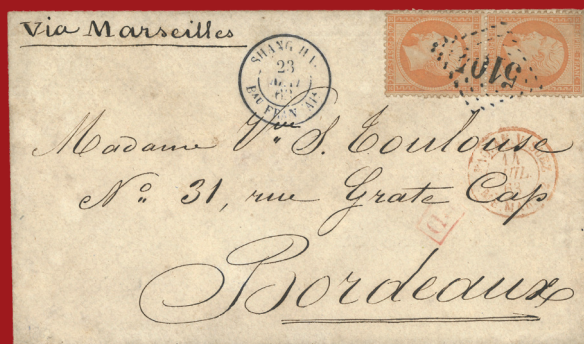 Via Marseilles
SHANG HAI
23
BAU FRANÇAIS
5104
Madame Vve S. Toulouse
No 31, rue Grate Cap
Bordeaux